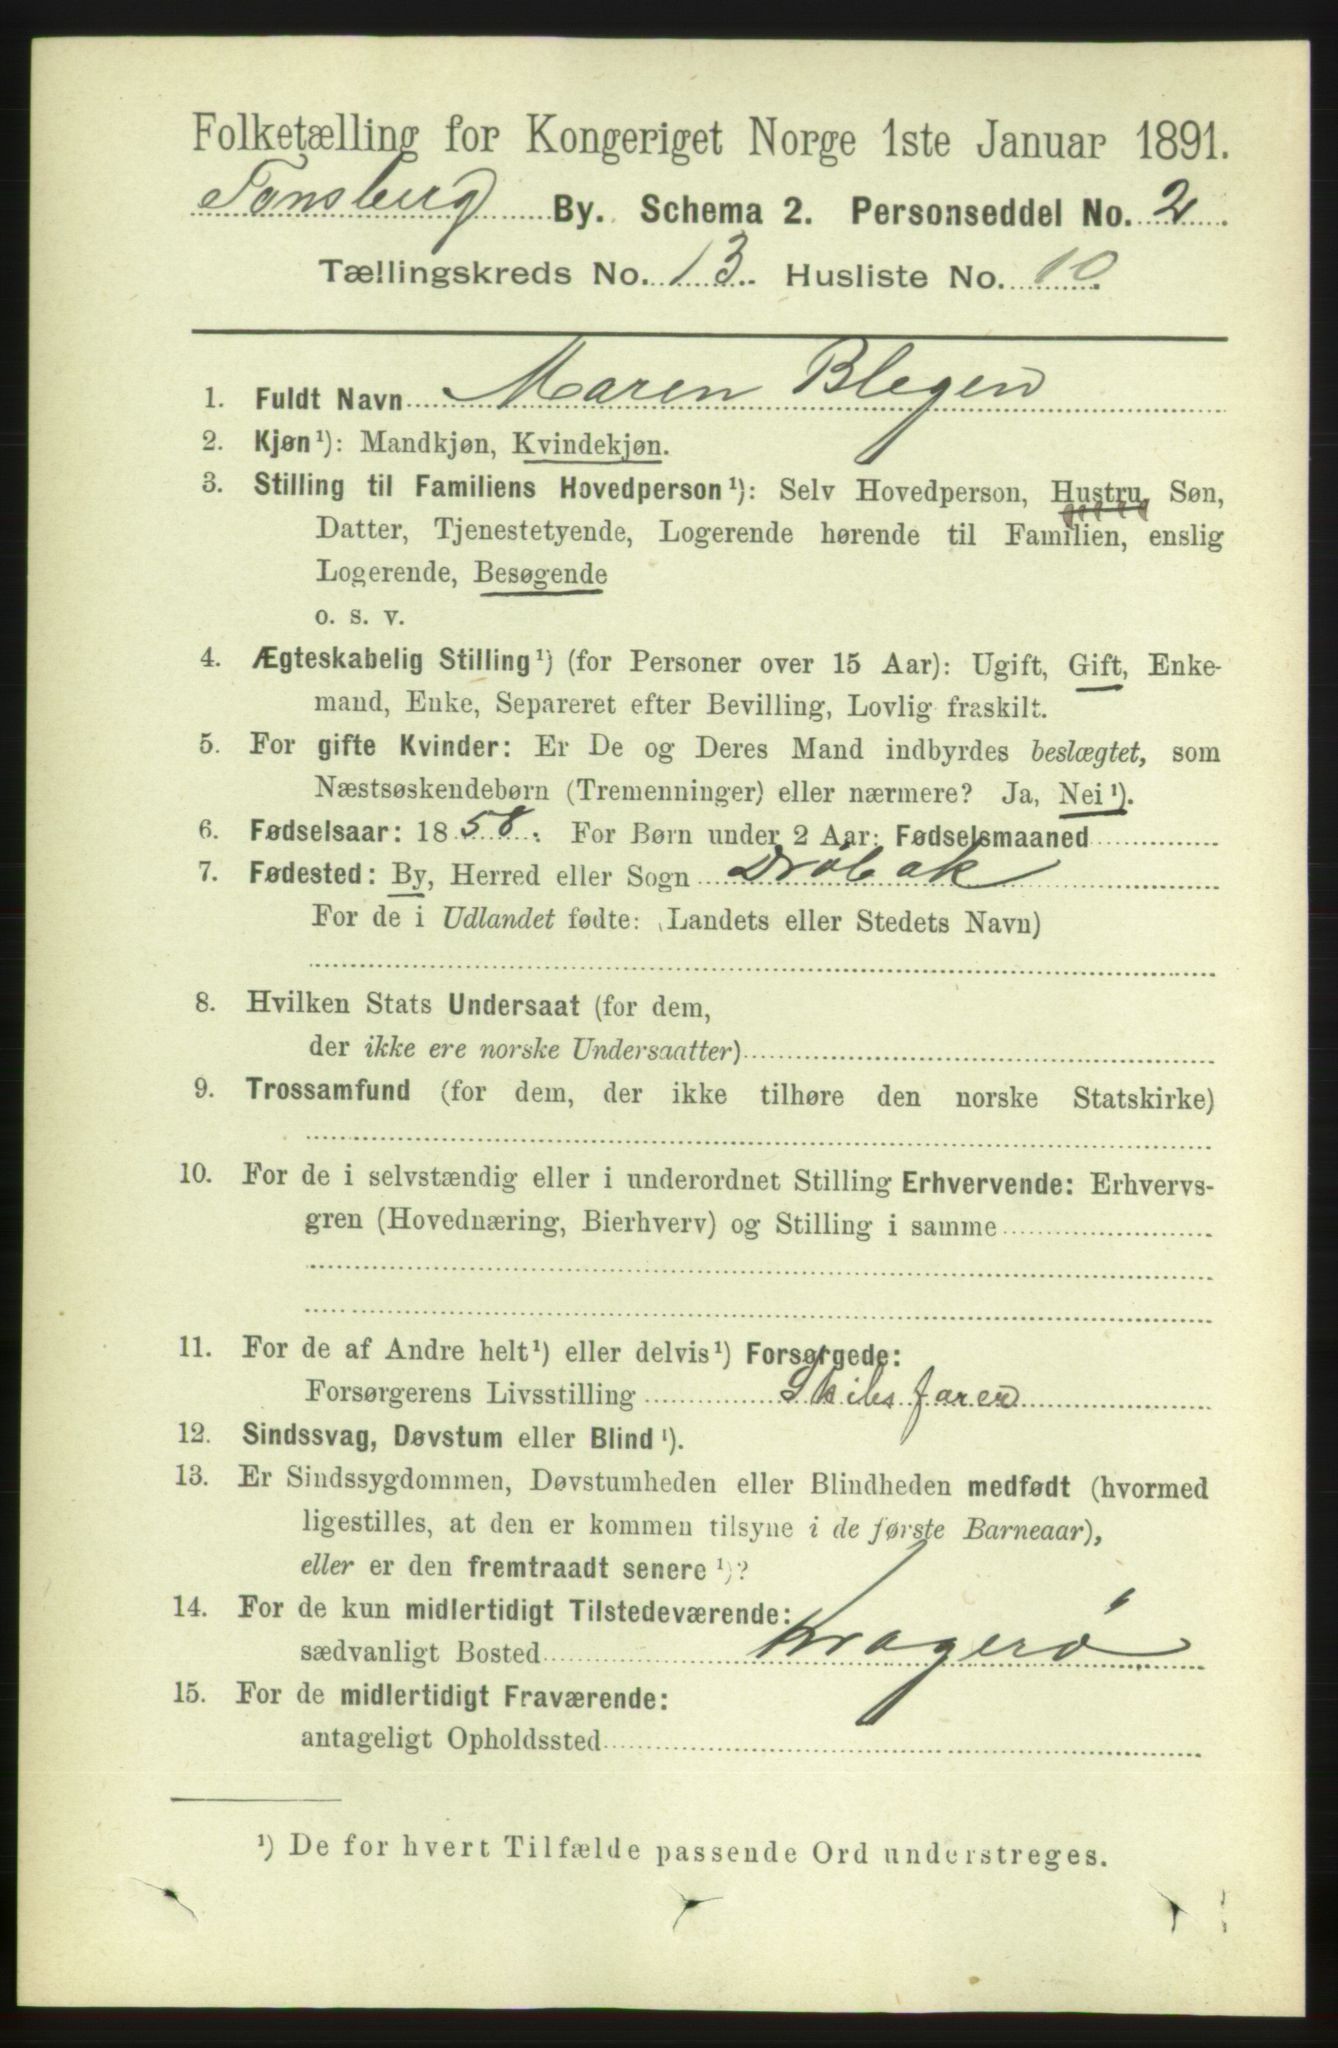 Folketælling for Kongeriget Norge 1ste Januar 1891.
Tønsberg By. Schema 2. Personseddel No. 2.
Tællingskreds No. 13. Husliste No. 10.
1. Fuldt Navn Maren Blegen
2. Kjøn¹): Mandkjøn, Kvindekjøn.
3. Stilling til Familiens Hovedperson¹): Selv Hovedperson, Hustru, Søn,
Datter, Tjenestetyende, Logerende hørende til Familien, enslig
Logerende, Besøgende
o. s. v.
4. Ægteskabelig Stilling¹) (for Personer over 15 Aar): Ugift, Gift, Enke-
mand, Enke, Separeret efter Bevilling, Lovlig fraskilt.
5. For gifte Kvinder: Er De og Deres Mand indbyrdes beslægtet, som
Næstsøskendebørn (Tremenninger) eller nærmere? Ja, Nei¹).
6. Fødselsaar: 1858. For Børn under 2 Aar: Fødselsmaaned
7. Fødested: By, Herred eller Sogn Drøbak
For de i Udlandet fødte: (Landets eller Stedets Navn)
8. Hvilken Stats Undersaat (for dem,
der ikke ere norske Undersaatter)
9. Trossamfund (for dem, der ikke tilhøre den norske Statskirke)
10. For de i selvstændig eller i underordnet Stilling Erhvervende: Erhvervs-
gren (Hovednæring, Bierhverv) og Stilling i samme
11. For de af Andre helt¹) eller delvis¹) Forsørgede:
Forsørgerens Livsstilling Skibsfører
12. Sindssvag, Døvstum eller Blind¹).
13. Er Sindssygdommen, Døvstumheden eller Blindheden medfødt (hvormed
ligestilles, at den er kommen tilsyne i de første Barneaar),
eller er den fremtraadt senere¹)?
14. For de kun midlertidigt Tilstedeværende:
sædvanligt Bosted Kragerö
15. For de midlertidigt Fraværende:
antageligt Opholdssted
¹) De for hvert Tilfælde passende Ord understreges.